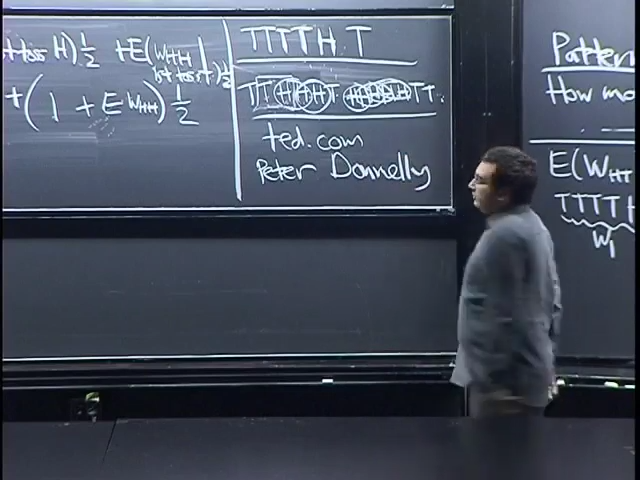 1st toss H) 1/2 + E(W_HH | 1st toss T) 1/2
+ (1 + E W_HH) 1/2
TTTTH T
ted.com
Peter Donnelly
Pattern
How mo
E(W_HT
TTTTH
W_1